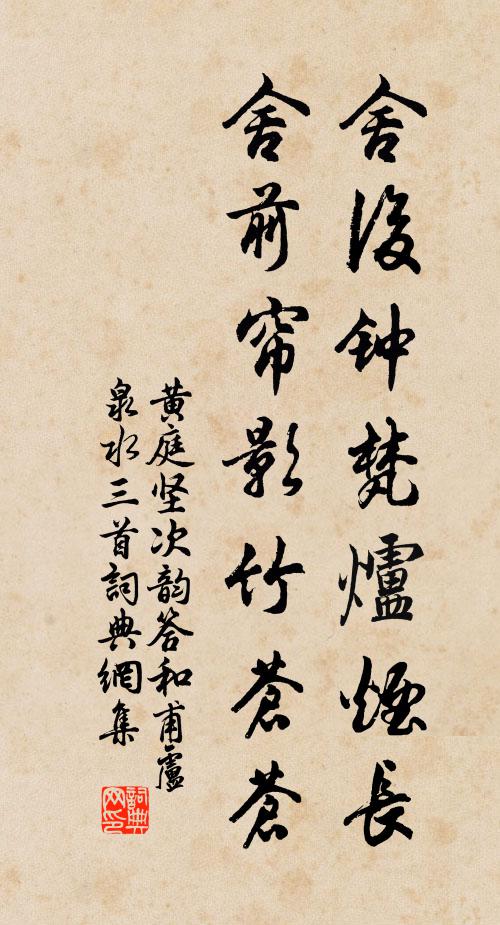 舍後钟梵爐煙長
舍前帘影竹蒼蒼
黄庭坚次韵答和甫盧
泉水三首詞典網集
詞典网印